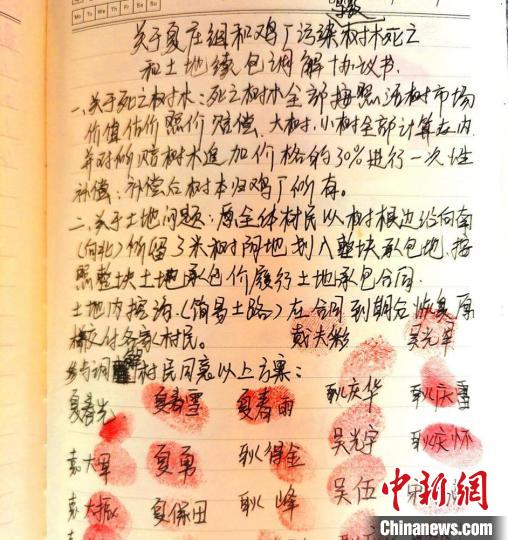 Mo Tu We Th Fr Sa Su
导致
关于夏庄组和鸡厂污染树木死亡
和土地续包调解协议书
一、关于死亡树木：死亡树木全部按照活树市场
价值估价照价赔偿、大树、小树全部计算在内，
并对所赔树木追加价格的30%进行一次性
补偿，补偿后树木归鸡厂所有。
二、关于土地问题：原全体村民以树根边沿向南
(向北)所留3米树阴地划入整块承包地，按
照整块土地承包价履行土地承包合同.
土地内挖沟，(简易土路)在合同到期后恢复原
样交付各家村民。
戴夫彬 吴光军
参与调解村民同意以上方案：
夏春光 夏春雪 夏春雨 耿庆华 耿庆雪
袁大军 夏勇 耿得金 吴光宇 耿庆怀
袁大振 夏保田 耿峰 吴伍 宋
中新网
Chinanews.com